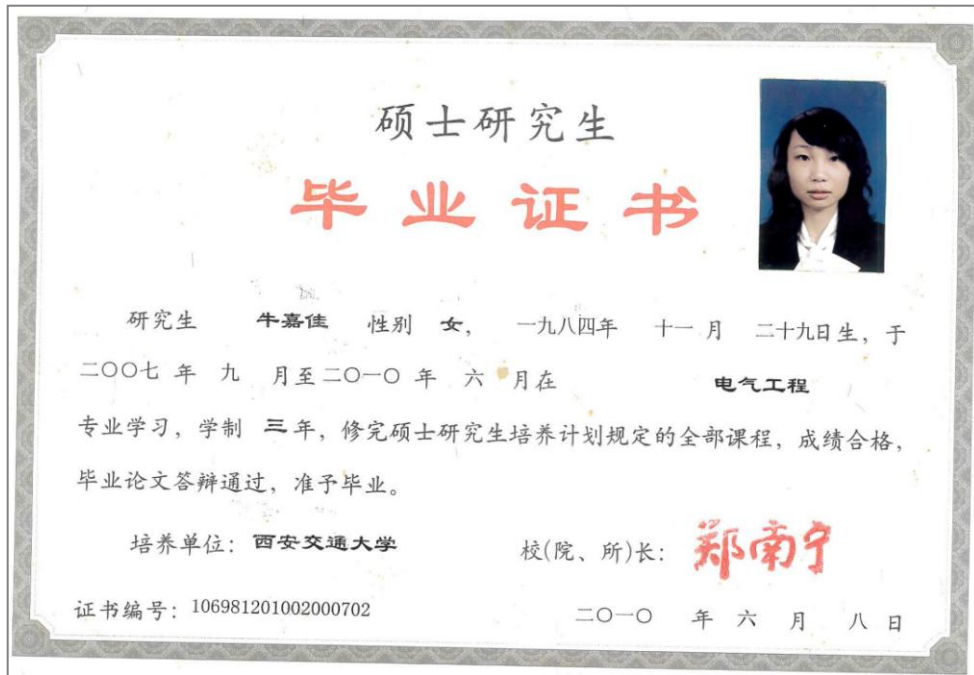 硕士研究生
毕业证书
研究生 牛嘉佳 性别 女， 一九八四年 十一月 二十九日生，于
二〇〇七 年 九 月至二〇一〇 年 六 月在 电气工程
专业学习，学制 三年，修完硕士研究生培养计划规定的全部课程，成绩合格，
毕业论文答辩通过，准予毕业。
培养单位：西安交通大学 校(院、所)长：郑南宁
证书编号：106981201002000702 二〇一〇 年 六 月 八 日